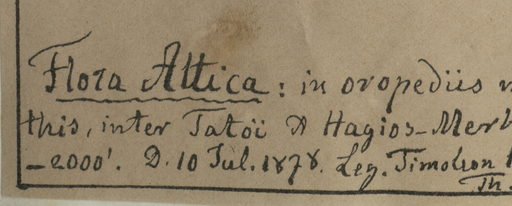 Flora Attica: in oropediis
this, inter Tatoï & Hagios-Mer
-2000'. D. 10 Jul. 1878. Leg. Timoleon
Th.